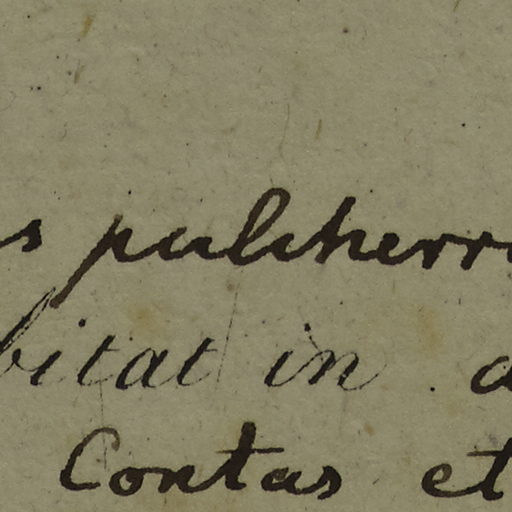 s pulcherri
bitat in a
Contas et